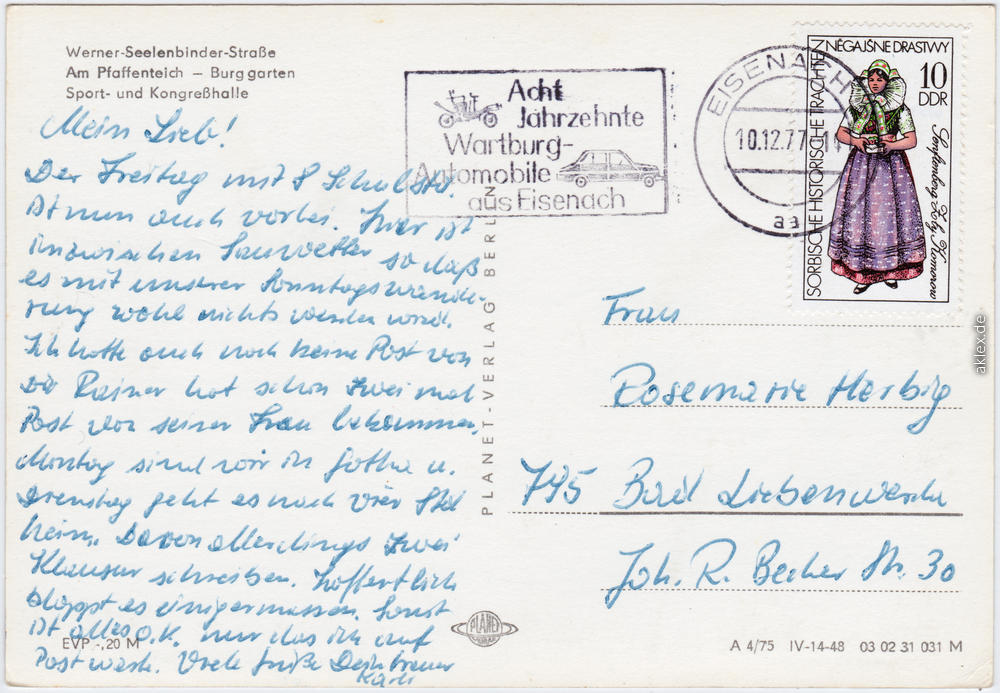 Werner-Seelenbinder-Straße
Am Pfaffenteich – Burggarten
Sport- und Kongreßhalle
Mein Lieb!
Der Freitag mit 8 Schulstd.
ist nun auch vorbei. Hier ist
inzwischen Sauwetter so daß
es mit unserer Sonntagswande-
rung wohl nichts werden wird.
Ich hatte auch noch keine Post von
Dir Rainer hat schon zwei mal
Post von seiner Frau bekommen.
Montag sind wir in Gotha u.
Dienstag geht es nach vier Std
heim. Davon allerdings zwei
Klausur schreiben. Hoffentlich
klappt es einigermassen. Sonst
ist alles O.K. nur das ich auf
Post wart. Viele Grüße Dein treuer
Karli
EVP -,20 M
PLANET-VERLAG BERLIN
PLANET
VERLAG
Acht
Jahrzehnte
Wartburg-
Automobile
aus Eisenach
EISENACH
10.12.77
aa
NĚGAJŠNE DRASTWY
10
DDR
SORBISCHE HISTORISCHE TRACHTEN
Senftenberg Zły Komorow
Frau
Rosemarie Herbig
795 Bad Liebenwerda
Joh. R. Becher Str. 30
A 4/75 IV-14-48 03 02 31 031 M
aklex.de